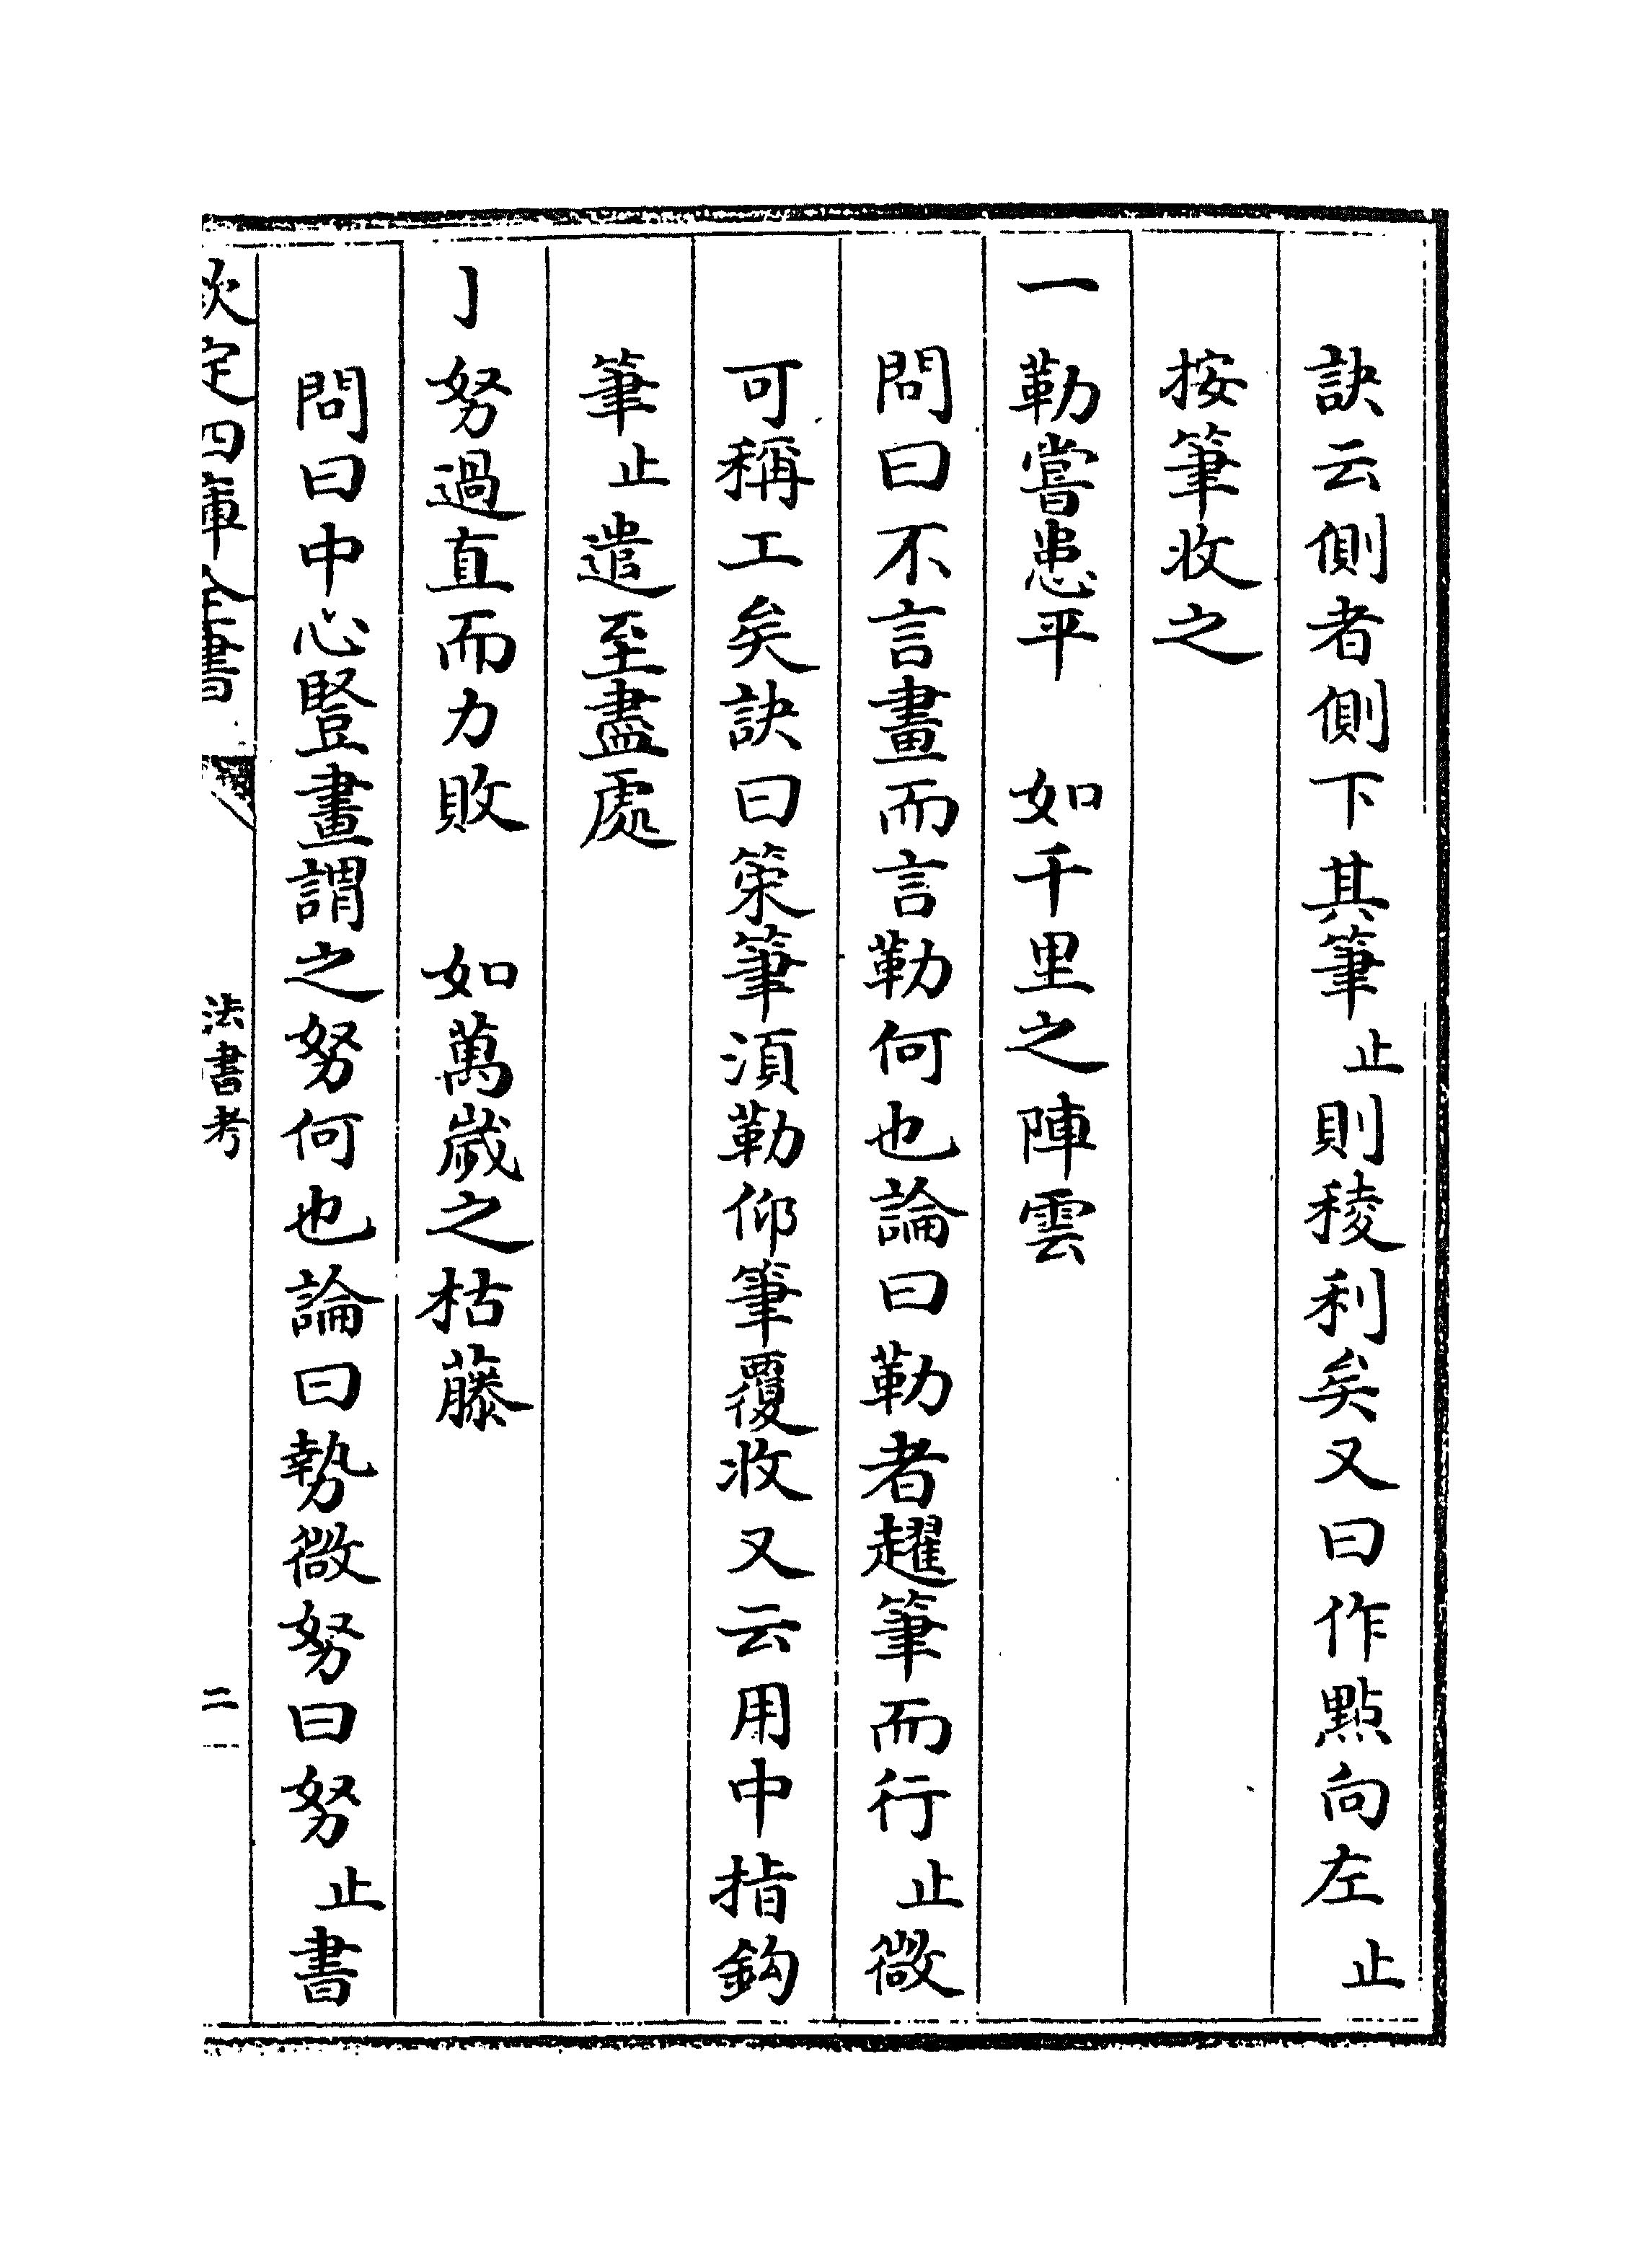 訣云側者側下其筆止則稜利矣又曰作㸃向左止
按筆收之
一勒嘗患平　如千里之陣雲
問曰不言畫而言勒何也論曰勒者趯筆而行止微
可稱工矣訣曰策筆湏勒仰筆覆收又云用中指鈎
筆止遣至盡處
亅努過直而力敗　如萬歲之枯藤
問曰中心豎畫謂之努何也論曰勢微努曰努止書
欽定四庫全書
法書考
二